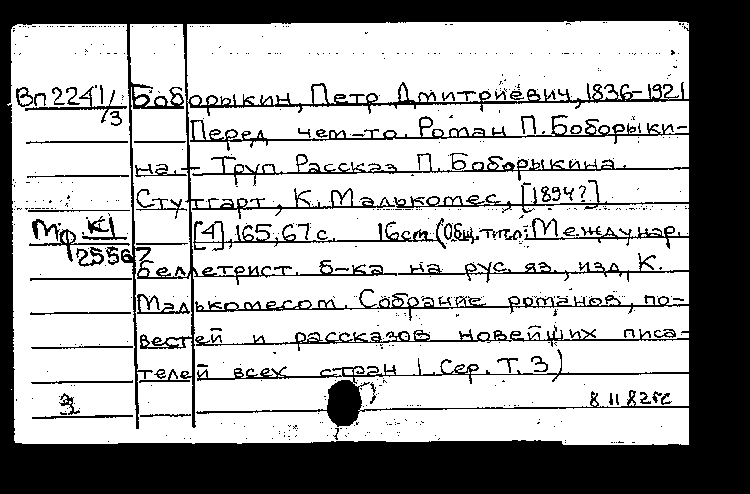 Вп2241/3 Боборыкин, Петр Дмитриевич, 1836-1921
Перед чем-то. Роман П. Боборыки-
на. - Труп. Рассказ П. Боборыкина.
Стутгарт, К. Малькомес, [1894?]
Мф К1 25567
[4], 165, 67 с. 16см (Общ. титл: Междунар.
беллетрист. б-ка на рус. яз., изд. К.
Малькомесом. Собрание романов, по-
вестей и рассказов новейших писа-
телей всех стран 1 Сер. Т. 3)
3
8 11 82